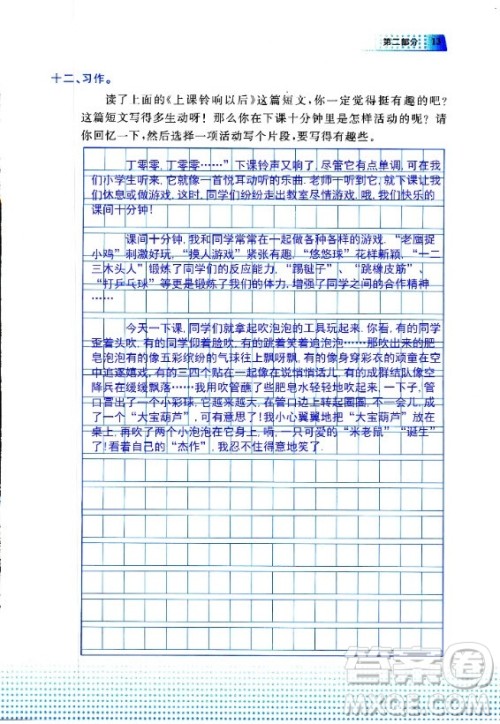 第二部分 13
十二、习作。
读了上面的《上课铃响以后》这篇短文，你一定觉得挺有趣的吧？
这篇短文写得多生动呀！那么你在下课十分钟里是怎样活动的呢？请
你回忆一下，然后选择一项活动写个片段，要写得有趣些。
丁零零，丁零零……”下课铃声又响了，尽管它有点单调，可在我
们小学生听来，它就像一首悦耳动听的乐曲.老师一听到它，就让我们
休息或做游戏，这时，同学们纷纷走出教室尽情游戏，哦，我们快乐的
课间十分钟！
课间十分钟，我和同学常常在一起做各种各样的游戏.“老鹰捉
小鸡”刺激好玩，“摸人游戏”紧张有趣，“悠悠球”花样新颖，“一二
三木头人”锻炼了同学们的反应能力，“踢毽子”、“跳橡皮筋”、
“打乒乓球”等更是锻炼了我们的体力，增强了同学之间的合作精神
……
今天一下课，同学们就拿起吹泡泡的工具玩起来.你看，有的同学
歪着头吹，有的仰着脸吹，有的跳着笑着追泡泡……那吹出来的肥
皂泡有的像五彩缤纷的气球往上飘呀飘，有的像身穿彩衣的顽童在空
中追逐嬉戏，有的三四个贴在一起像在说悄悄话儿，有的成群结队像空
降兵在缓缓飘落……我用吹管蘸了些肥皂水轻轻地吹起来，慢慢地，管
口冒出了一个小水泡，它越来越大，在管口边上转起圈圈，不一会儿，
成了一个“大宝葫芦”，可爱极了！我小心翼翼地把“大宝葫芦”放在
桌上，再吹了两个小泡泡在它上角，嗬，一只可爱的“米老鼠”“诞生”
了！看着自己的“杰作”，我忍不住得意地笑了.
答案圈
MXQE.COM